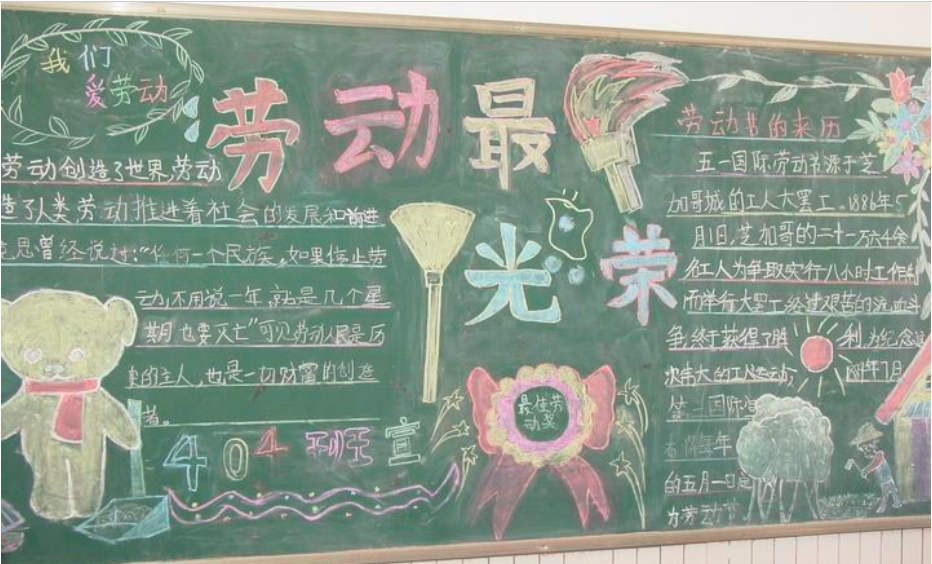 我们
爱劳动
劳动最
光荣
劳动创造了世界,劳动
造了人类劳动推进着社会的发展和前进
克思曾经说过:“任何一个民族,如果停止劳
动,不用说一年,就是几个星
期也要灭亡”可见劳动人民是历
史的主人,也是一切财富的创造
者。
404班宣
最佳劳
动奖
劳动节的来历
五一国际劳动节源于芝
加哥城的工人大罢工.1886年5
月1日,芝加哥的二十一万六千余
名工人为争取实行八小时工作制
而举行大罢工,经过艰苦的流血斗
争,终于获得了胜利.为纪念这
次伟大的工人运动,年7月
第二国际
年
的五月一日
为劳动节